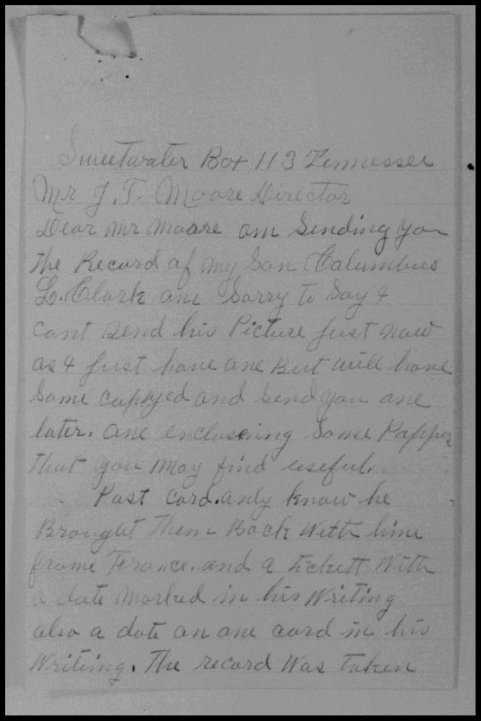 Sweetwater Box 113 Tennessee
Mr J. T. Moore Director
Dear Mr Moore am Sending You
the Record of My Son Columbus
L. Clark am Sorry to Say I
cant Send his Picture just now
as I just have one But will have
Some coppyed and Send you one
later. am enclosing Some Papper
that you may find useful.
Post card. only know he
Brought Them Back With him
frome France. and a tickett With
a date Marked in his Writing
also a date on one card in his
Writing. The record Was taken